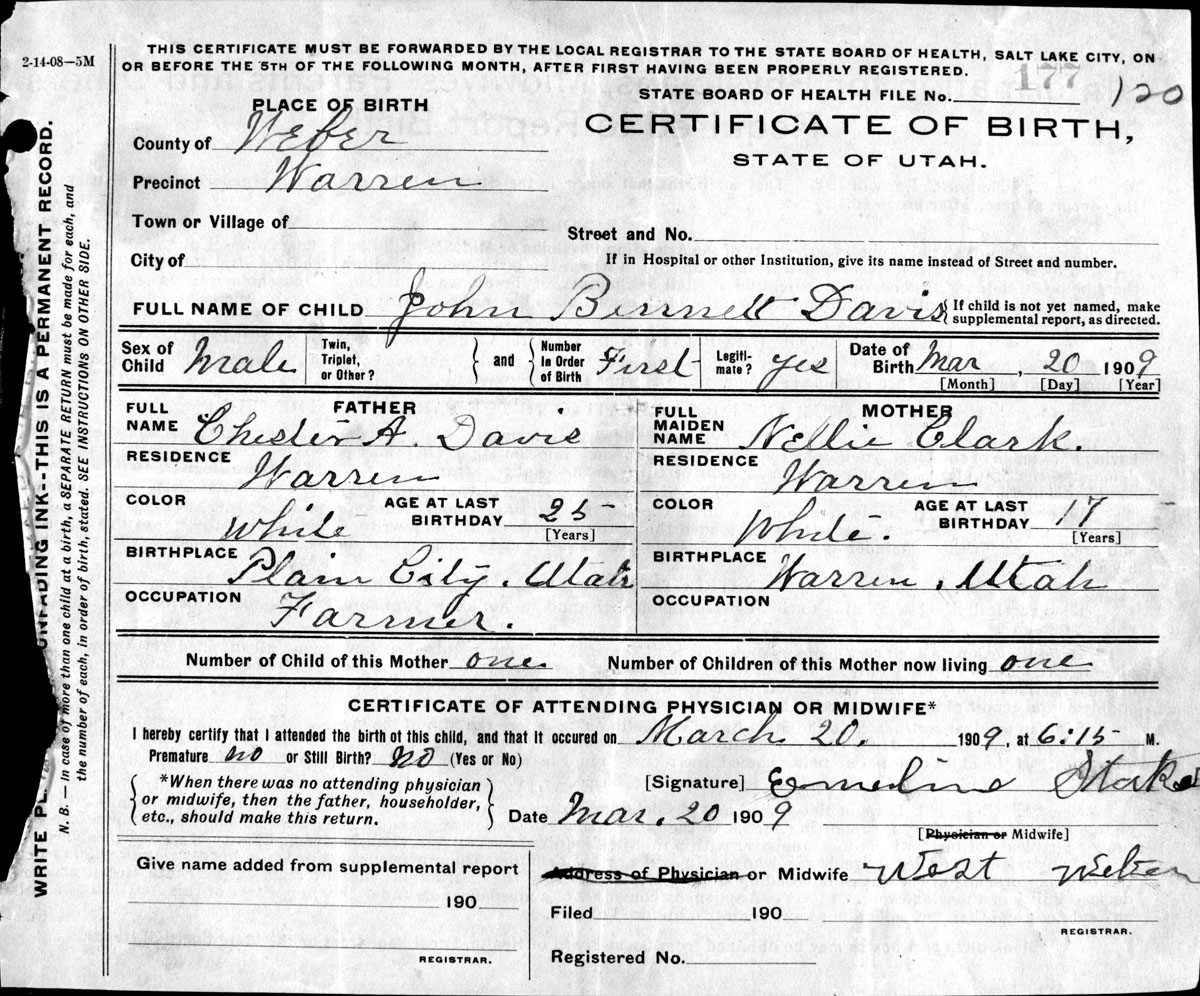 2-14-08—5M
THIS CERTIFICATE MUST BE FORWARDED BY THE LOCAL REGISTRAR TO THE STATE BOARD OF HEALTH, SALT LAKE CITY, ON
OR BEFORE THE 5TH OF THE FOLLOWING MONTH, AFTER FIRST HAVING BEEN PROPERLY REGISTERED.
STATE BOARD OF HEALTH FILE No. 177 120
PLACE OF BIRTH
CERTIFICATE OF BIRTH,
STATE OF UTAH.
County of Weber
Precinct Warren
Town or Village of
Street and No.
City of
If in Hospital or other Institution, give its name instead of Street and number.
FULL NAME OF CHILD John Bennett Davis { If child is not yet named, make supplemental report, as directed.
Sex of Child Male Twin, Triplet, or Other? } and { Number in Order of Birth First Legiti-mate? yes Date of Birth Mar , 20 1909
[Month] [Day] [Year]
FATHER
FULL NAME Chester A. Davis
RESIDENCE Warren
COLOR White AGE AT LAST BIRTHDAY 25 [Years]
BIRTHPLACE Plain City, Utah
OCCUPATION Farmer.
MOTHER
FULL MAIDEN NAME Nellie Clark.
RESIDENCE Warren
COLOR White. AGE AT LAST BIRTHDAY 17 [Years]
BIRTHPLACE Warren, Utah
OCCUPATION
Number of Child of this Mother one. Number of Children of this Mother now living one
CERTIFICATE OF ATTENDING PHYSICIAN OR MIDWIFE*
I hereby certify that I attended the birth of this child, and that it occured on March 20. 1909, at 6:15 M.
Premature no or Still Birth? No (Yes or No)
*When there was no attending physician
or midwife, then the father, householder,
etc., should make this return.
[Signature] Emeline
Date Mar. 20 1909
[Physician or Midwife]
Give name added from supplemental report
190
REGISTRAR.
Address of Physician or Midwife West Weber
Filed 190
REGISTRAR.
Registered No.
WRITE PL UNFADING INK--THIS IS A PERMANENT RECORD.
N. B. — In case of more than one child at a birth, a SEPARATE RETURN must be made for each, and
the number of each, in order of birth, stated. SEE INSTRUCTIONS ON OTHER SIDE.